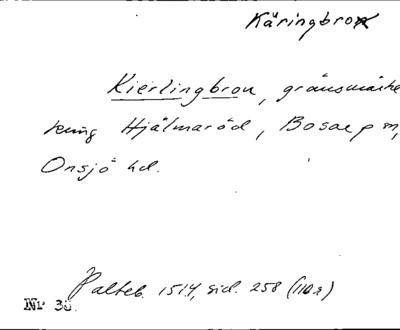 Käringbron
Kierlingbron, gränsmärke
kring Hjälmaröd, Bosarp m,
Onsjö hd.
Palteb. 1514, sid. 258 (110a)
Nr 30.